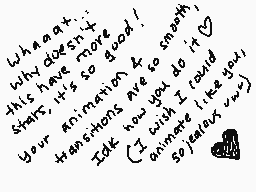 whaaat...
why doesn't
this have more
stars, it's so good!
your animation &
transitions are so smooth,
Idk how you do it ♡
(I wish I could
animate like you,
so jealous YwY)